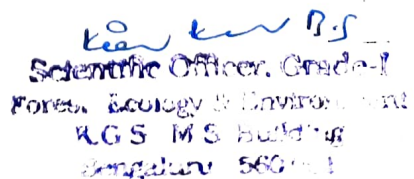 B.S
Scientific Officer, Grade-I
Forest Ecology & Environment
K.G.S M S Building
Bengaluru 560